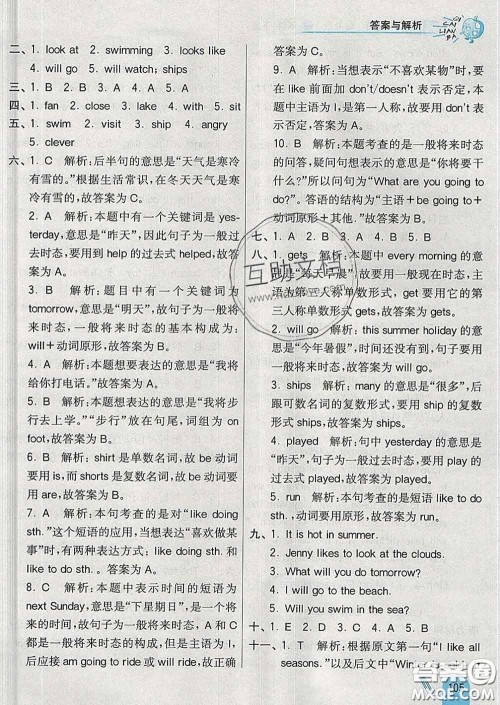 答案与解析
二、1. look at 2. swimming 3. looks like
4. will go 5. will watch; ships
三、1. B 2. A 3. B 4. A 5. B
四、1. fan 2. close 3. lake 4. with 5. sit
五、1. swim 2. visit 3. ship 4. angry
5. clever
六、1. C 解析:后半句的意思是“天气是寒冷
有雪的。”根据生活常识，在冬天天气是寒
冷有雪的，故答案为 C。
2. A 解析:本题中有一个关键词是 yes-
terday，意思是“昨天”，因此句子为一般过
去时态，要用到 help 的过去式 helped，故答
案为 A。
3. B 解析:题目中有一个关键词为
tomorrow，意思是“明天”，故句子为一般将
来时态，一般将来时态的基本构成为:
will＋动词原形，故答案为 B。
4. A 解析:本题想要表达的意思是“我将
给你打电话。”故答案为 A。
5. B 解析:本题要表达的意思是“我将步
行去上学。”“步行”放在句尾，词组为 on
foot，故答案为 B。
6. B 解析:shirt 是单数名词，故 be 动词
要用 is，而 shorts 是复数名词，故 be 动词要
用 are，故答案为 B。
7. A 解析:本题考查的是对“like doing
sth.”这个短语的应用，当想表达“喜欢做某
事”时，有两种表达方式: like doing sth. 和
like to do sth.。故答案为 A。
8. C 解析:本题中表示时间的短语为
next Sunday，意思是“下星期日”，是一般将
来时态，故句子为一般将来时态，根据一般
将来时态的构成，但是由于主语为 I，所以
后应接 am going to ride 或 will ride，故正确
答案为 C。
9. A 解析:当想表示“不喜欢某物”时，要
在 like 前面加 don't/doesn't 表示否定，因
本题中主语为 I，是第一人称，故要用 don't
表示否定，故答案为 A。
10. B 解析:本题考查的是一般将来时态
的问答，疑问句想表示的意思是“你将要干
什么?”所以问句为“What are you going to
do?”。答语的结构为“主语＋be going to＋
动词原形＋其他”，故答案为 B。
七、1. B 2. A 3. A 4. B 5. B
八、1. gets 解析:本题中 every morning 的意
思是“每天早晨”，故要用一般现在时态，而
主语为第三人称单数形式，get 要用它的第
三人称单数形式 gets，故答案为 gets。
2. will go 解析:this summer holiday 的意
思是“今年暑假”，时间还没有到，一般将来
时态，故答案为 will go。
3. ships 解析:many 的意思是“很多”，后
跟可数名词的复数形式，要用 ship 的复数
形式 ships，故答案为 ships。
4. played 解析:句中 yesterday 的意思是
“昨天”，句子为一般过去时态，要用 play 的
过去式 played，故答案为 played。
5. run 解析:本句考查的是短语 like to do
sth.，动词要用原形，故答案为 run。
九、1. It is hot in summer.
2. Jenny likes to look at the clouds.
3. What will you do tomorrow?
4. I will go to the beach.
5. Will you swim in the sea?
十、1. D 2. E 3. A 4. B 5. C
十一、1. T 解析:根据原文第一句“I like all
seasons.”以及后文中“Win
105
互助文档